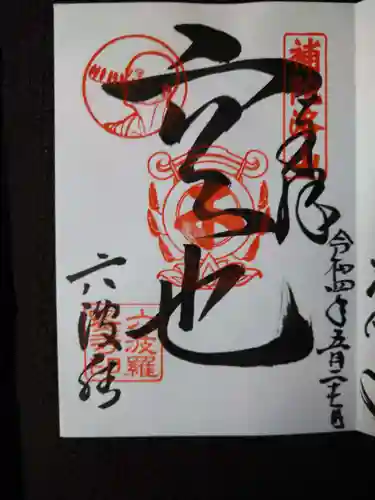 補陀洛山
奉拝
令和四年五月二十七日
空也
六波羅
六波羅